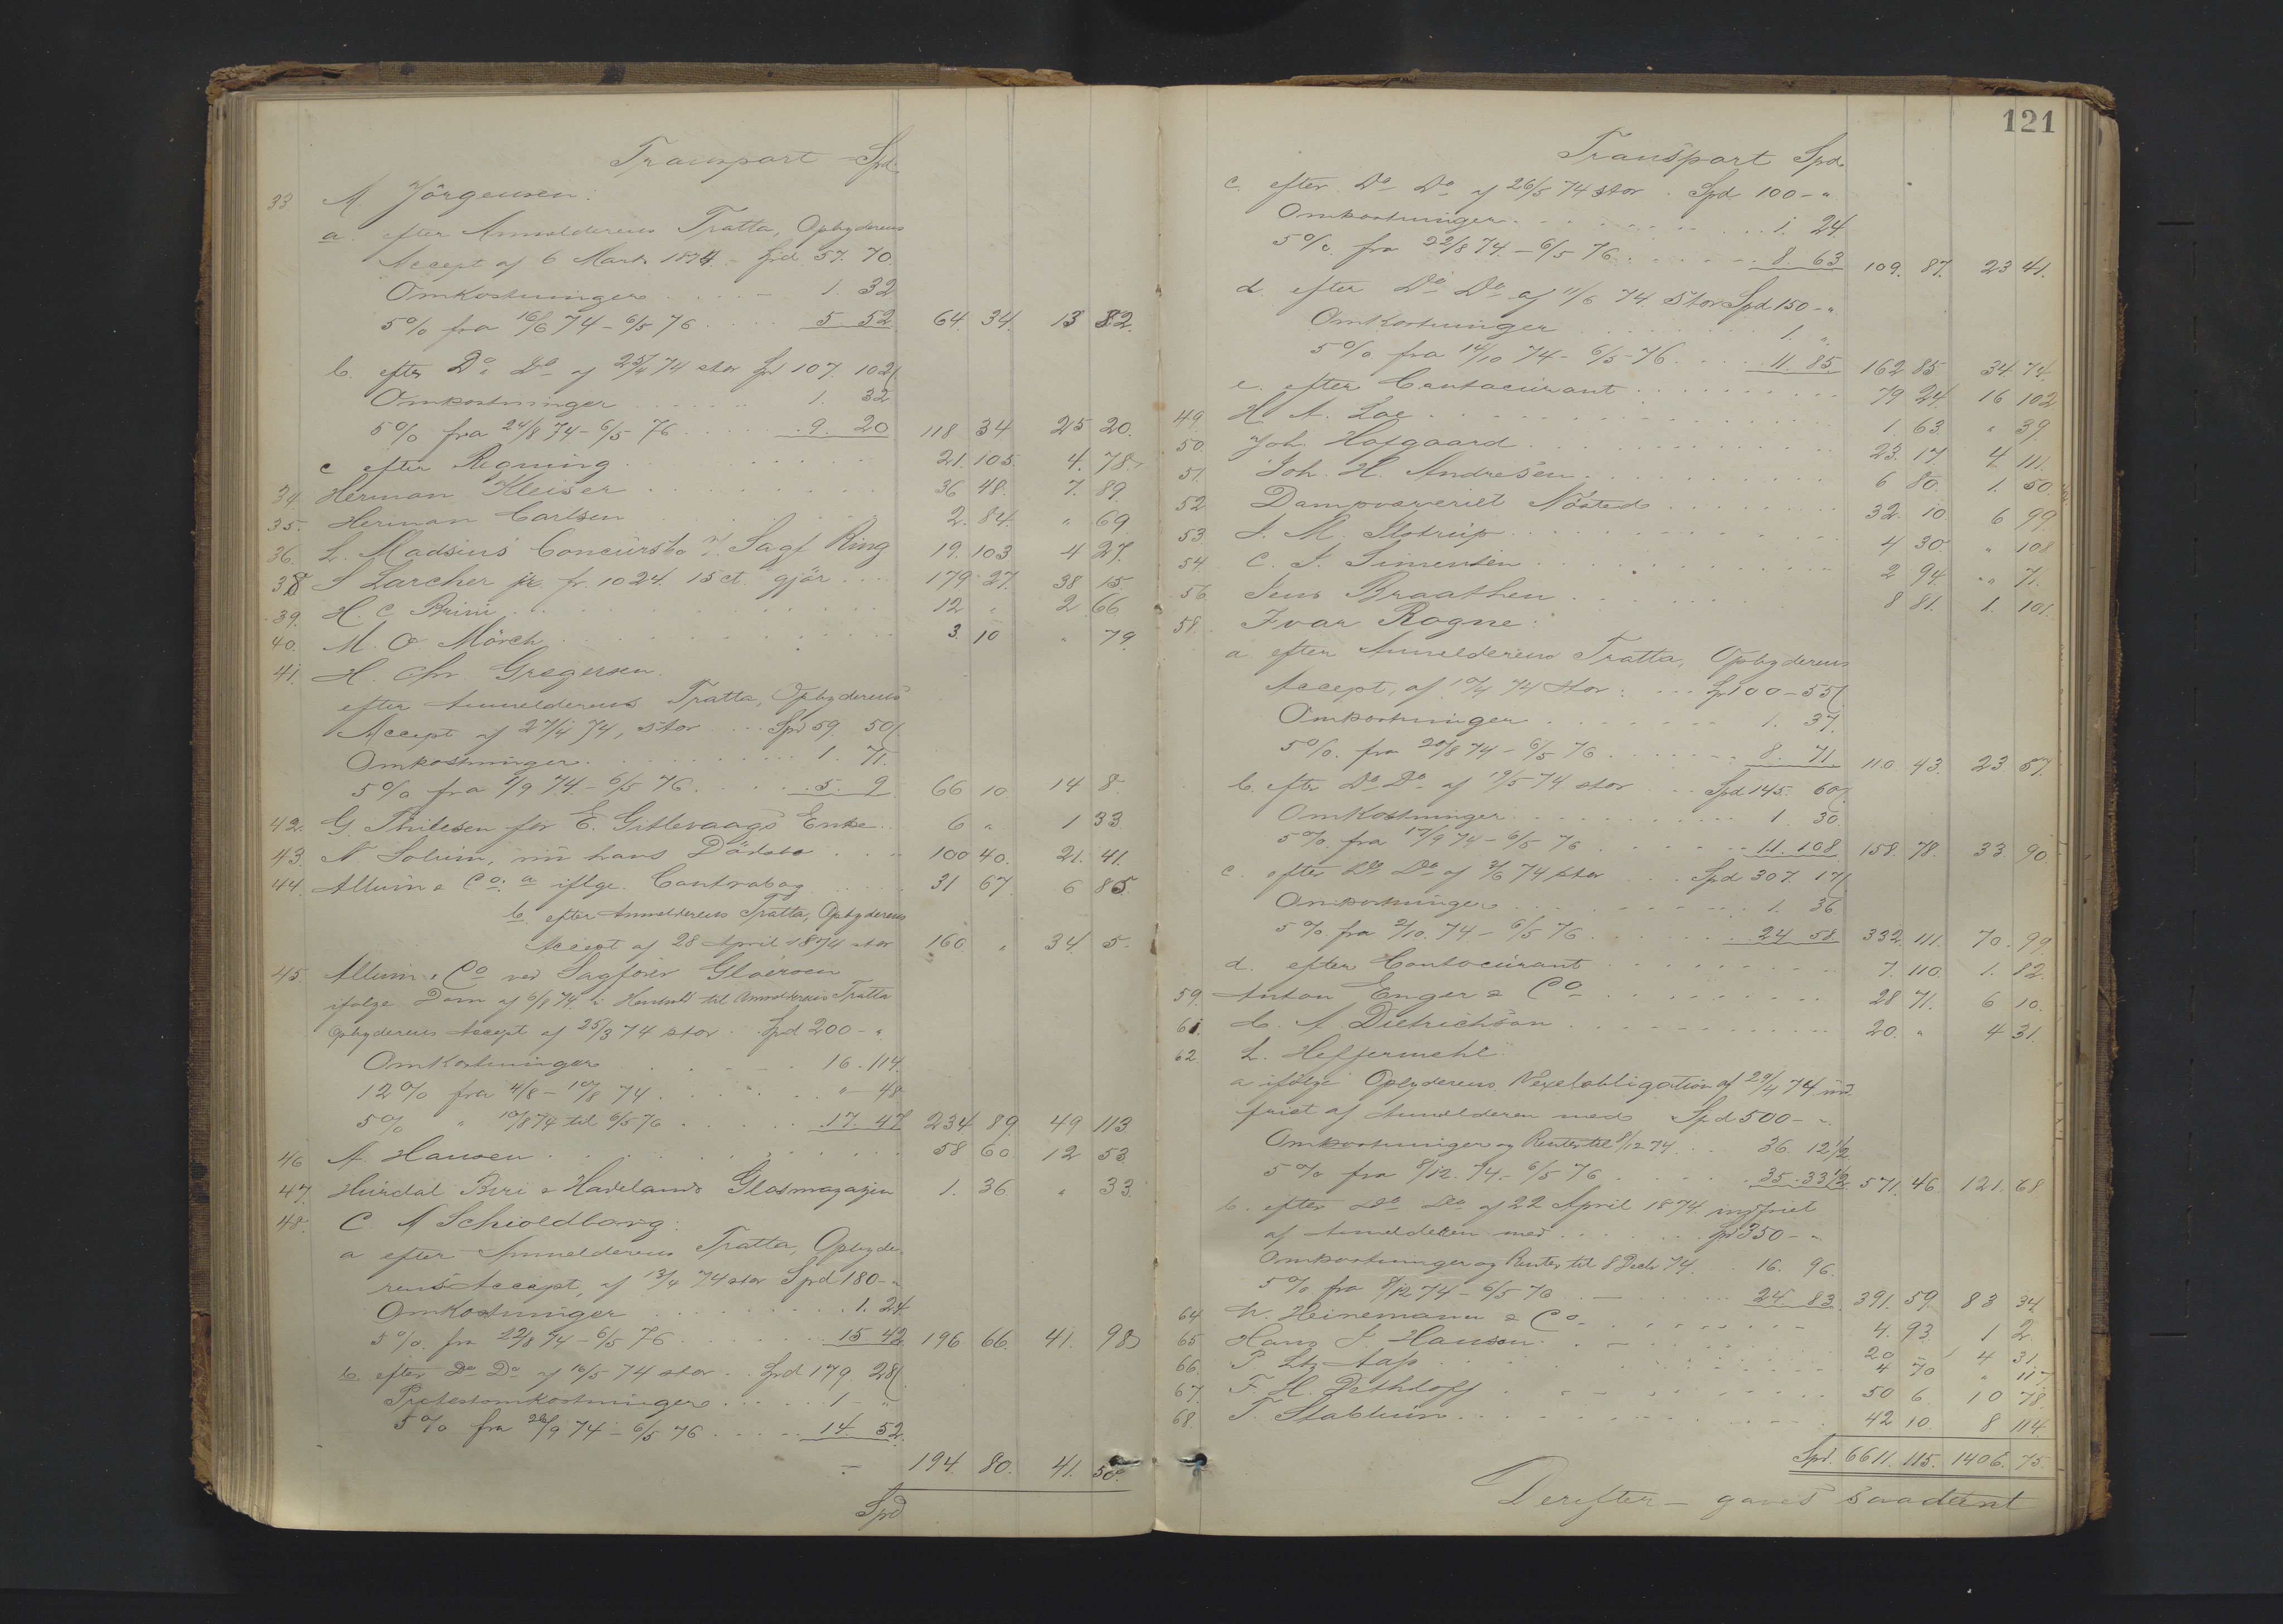 Transport Spd.
33 M. Jörgensen:
a. efter Anmelderens Tratta, Opbyderens
Accept af 6 Marts 1874 - Spd 57. 70.
Omkostninger 1. 32
5% fra 16/6 74 - 6/5 76 5. 52 64. 34. 13 82.
b. efter Do Do af 25/4 74 stor Spd 107. 102
Omkostninger 1. 32
5% fra 24/8 74 - 6/5 76 9. 20 118 34 25 20.
c efter Regning 21. 105. 4. 78.
34. Herman Kleiser 36 48. 7. 89.
35. Herman Carlsen 2. 84. " 69
36. L. Madsins Concursbo v. Sagf Ring 19. 103 4 27.
38 S Larcher jr. fr. 1024. 15 ct. gjör 179. 27. 38 15
39. H. C. Brini 12 " 2 66
40. M. O. Mörch 3. 10 " 79.
41. H. Chr. Gregersen.
efter Anmelderens Tratta, Opbyderens
Accept af 27/4 74, stor Spd 59. 50
Omkostninger 1. 71.
5% fra 1/9 74 - 6/5 76 5. 9 66 10 14 8.
42. G. Thilesen for E. Gitlevaags Enke 6 " 1 33.
43. N. Solum, nu hans Dödsbo 100 40. 21. 41.
44. Allum & Co. a iflge. Contrabog 31 67. 6 85.
b. efter Anmelderens Tratta, Opbyderens
Accept af 28 April 1874 stor 160. " 34 5.
45. Allum & Co ved Sagförer Gloersen
ifolge Dom af 6/8 74. i Henhold til Anmelderens Tratta
Opbyderens Accept af 25/3 74 stor Spd 200 - "
Omkostninger 16. 114.
12% fra 4/8 - 10/8 74 " 48.
5% " 10/8 74 til 6/5 76 17. 47 234 89. 49 113
46 A. Hansen 58 60 12 53
47. Hurdal Biri & Hadelands Glasmagazin 1. 36 " 33.
48. C A Schioldborg:
a efter Anmelderens Tratta, Opbyde-
rens Accept, af 13/4 74 stor Spd 180 - "
Omkostninger 1. 24
5% fra 22/8 74 - 6/5 76 15 42 196 66. 41. 98
b. efter Do Do af 16/5 74 stor Spd 179. 28
Protestomkostninger 1 - "
5% fra 26/9 74 - 6/5 76 14. 52.
194. 80. 41. 50.
Spd
121
Transport Spd.
c. efter Do Do af 26/5 74 stor Spd 100 - "
Omkostninger 1. 24
5% fra 22/8 74 - 6/5 76 8. 63 109. 87. 23 41.
d efter Do Do af 11/6 74 stor Spd 150 - "
Omkostninger 1. "
5% fra 14/10 74 - 6/5 - 76 11. 85. 162 85 34 74.
e. efter Contocurant 79 24. 16 102
49. H. A. Loe 1. 63. " 39.
50. Joh. Hofgaard 23. 17 4 111.
51. Joh. H. Andresen 6 80. 1. 50.
52 Dampvæveriet Nösted 32. 10. 6 99.
53. J. M. Ilstrup 4 30. " 108
54. C. J. Simensen 2 94. " 71.
56. Jens Braathen 8 81. 1. 101.
58. Ivar Rogne:
a efter Anmelderens Tratta, Opbyderens
Accept, af 17/4 74 stor: Sp 100 - 55
Omkostninger 1. 37.
5% fra 20/8 74 - 6/5 76 8. 71 110. 43. 23 57.
b. efter Do Do af 19/5 74 stor Spd 145. 60
Omkostninger 1. 30
5% fra 17/9 74 - 6/5 76 11. 108 158. 78. 33. 90.
c. efter Do Do af 3/6 74 stor Spd 307. 17
Omkostninger 1. 36
5% fra 2/10. 74 - 6/5 76 24 58 332. 111. 70. 99.
d. efter Contocurant 7. 110. 1. 82.
59. Anton Enger & Co 28 71. 6 10.
61. C. A Dietrichson 20. " 4 31.
62. L. Heffermehl
a ifölge Opbyderens Vexelobligation af 29/4 74 ind-
friet af Anmelderen med Spd 500 - "
Omkostninger og Renter til 8/12 74 36 12 1/2
5% fra 8/12. 74 - 6/5 76 35. 33 1/2 571. 46. 121. 68
b. efter Do Do af 22 April 1874. indfriet
af Anmelderen med Spd 350 - "
Omkostninger og Renter til 8 Decbr 74. 16. 96.
5% fra 8/12 74 - 6/5 76 24 83. 391. 59. 83 34.
64. W. Heinemann & Co 4. 93. 1 2.
65 Hans J. Hansen 20 - 4 31.
66. P Ltz Aas 4 70 " 117
67. F. H. Dethloff 50 6. 10 78.
68. T. Stablum 42 10. 8 114.
Spd. 6611. 115. 1406. 75.
Derefter - gaves saadant